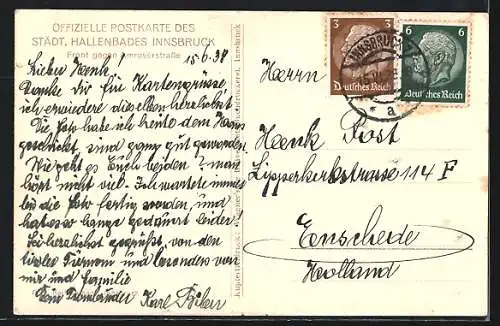 OFFIZIELLE POSTKARTE DES
STÄDT. HALLENBADES INNSBRUCK
Front gegen Amraserstraße
15-6-38
Lieber Henk!
Danke dir für Kartengrüsse,
ich erwiedere dieselben herzlichst
Die habe ich heute dem
geschickt, sind ganz gut geworden
Wie geht es Euch beiden? man
hört nicht viel. Ich wartete immer
bis die fertig wurden, und
hat es so lange gedauert leider!
Sei herzlichst gegrüßt, von den
Tiroler und besonders von
mir und Familie
Dein Karl
Herrn
Henk Post
Lipperkerkstrasse 114 F
Enschede
Holland
3
Deutsches Reich
6
Deutsches Reich
INNSBRUCK
* a